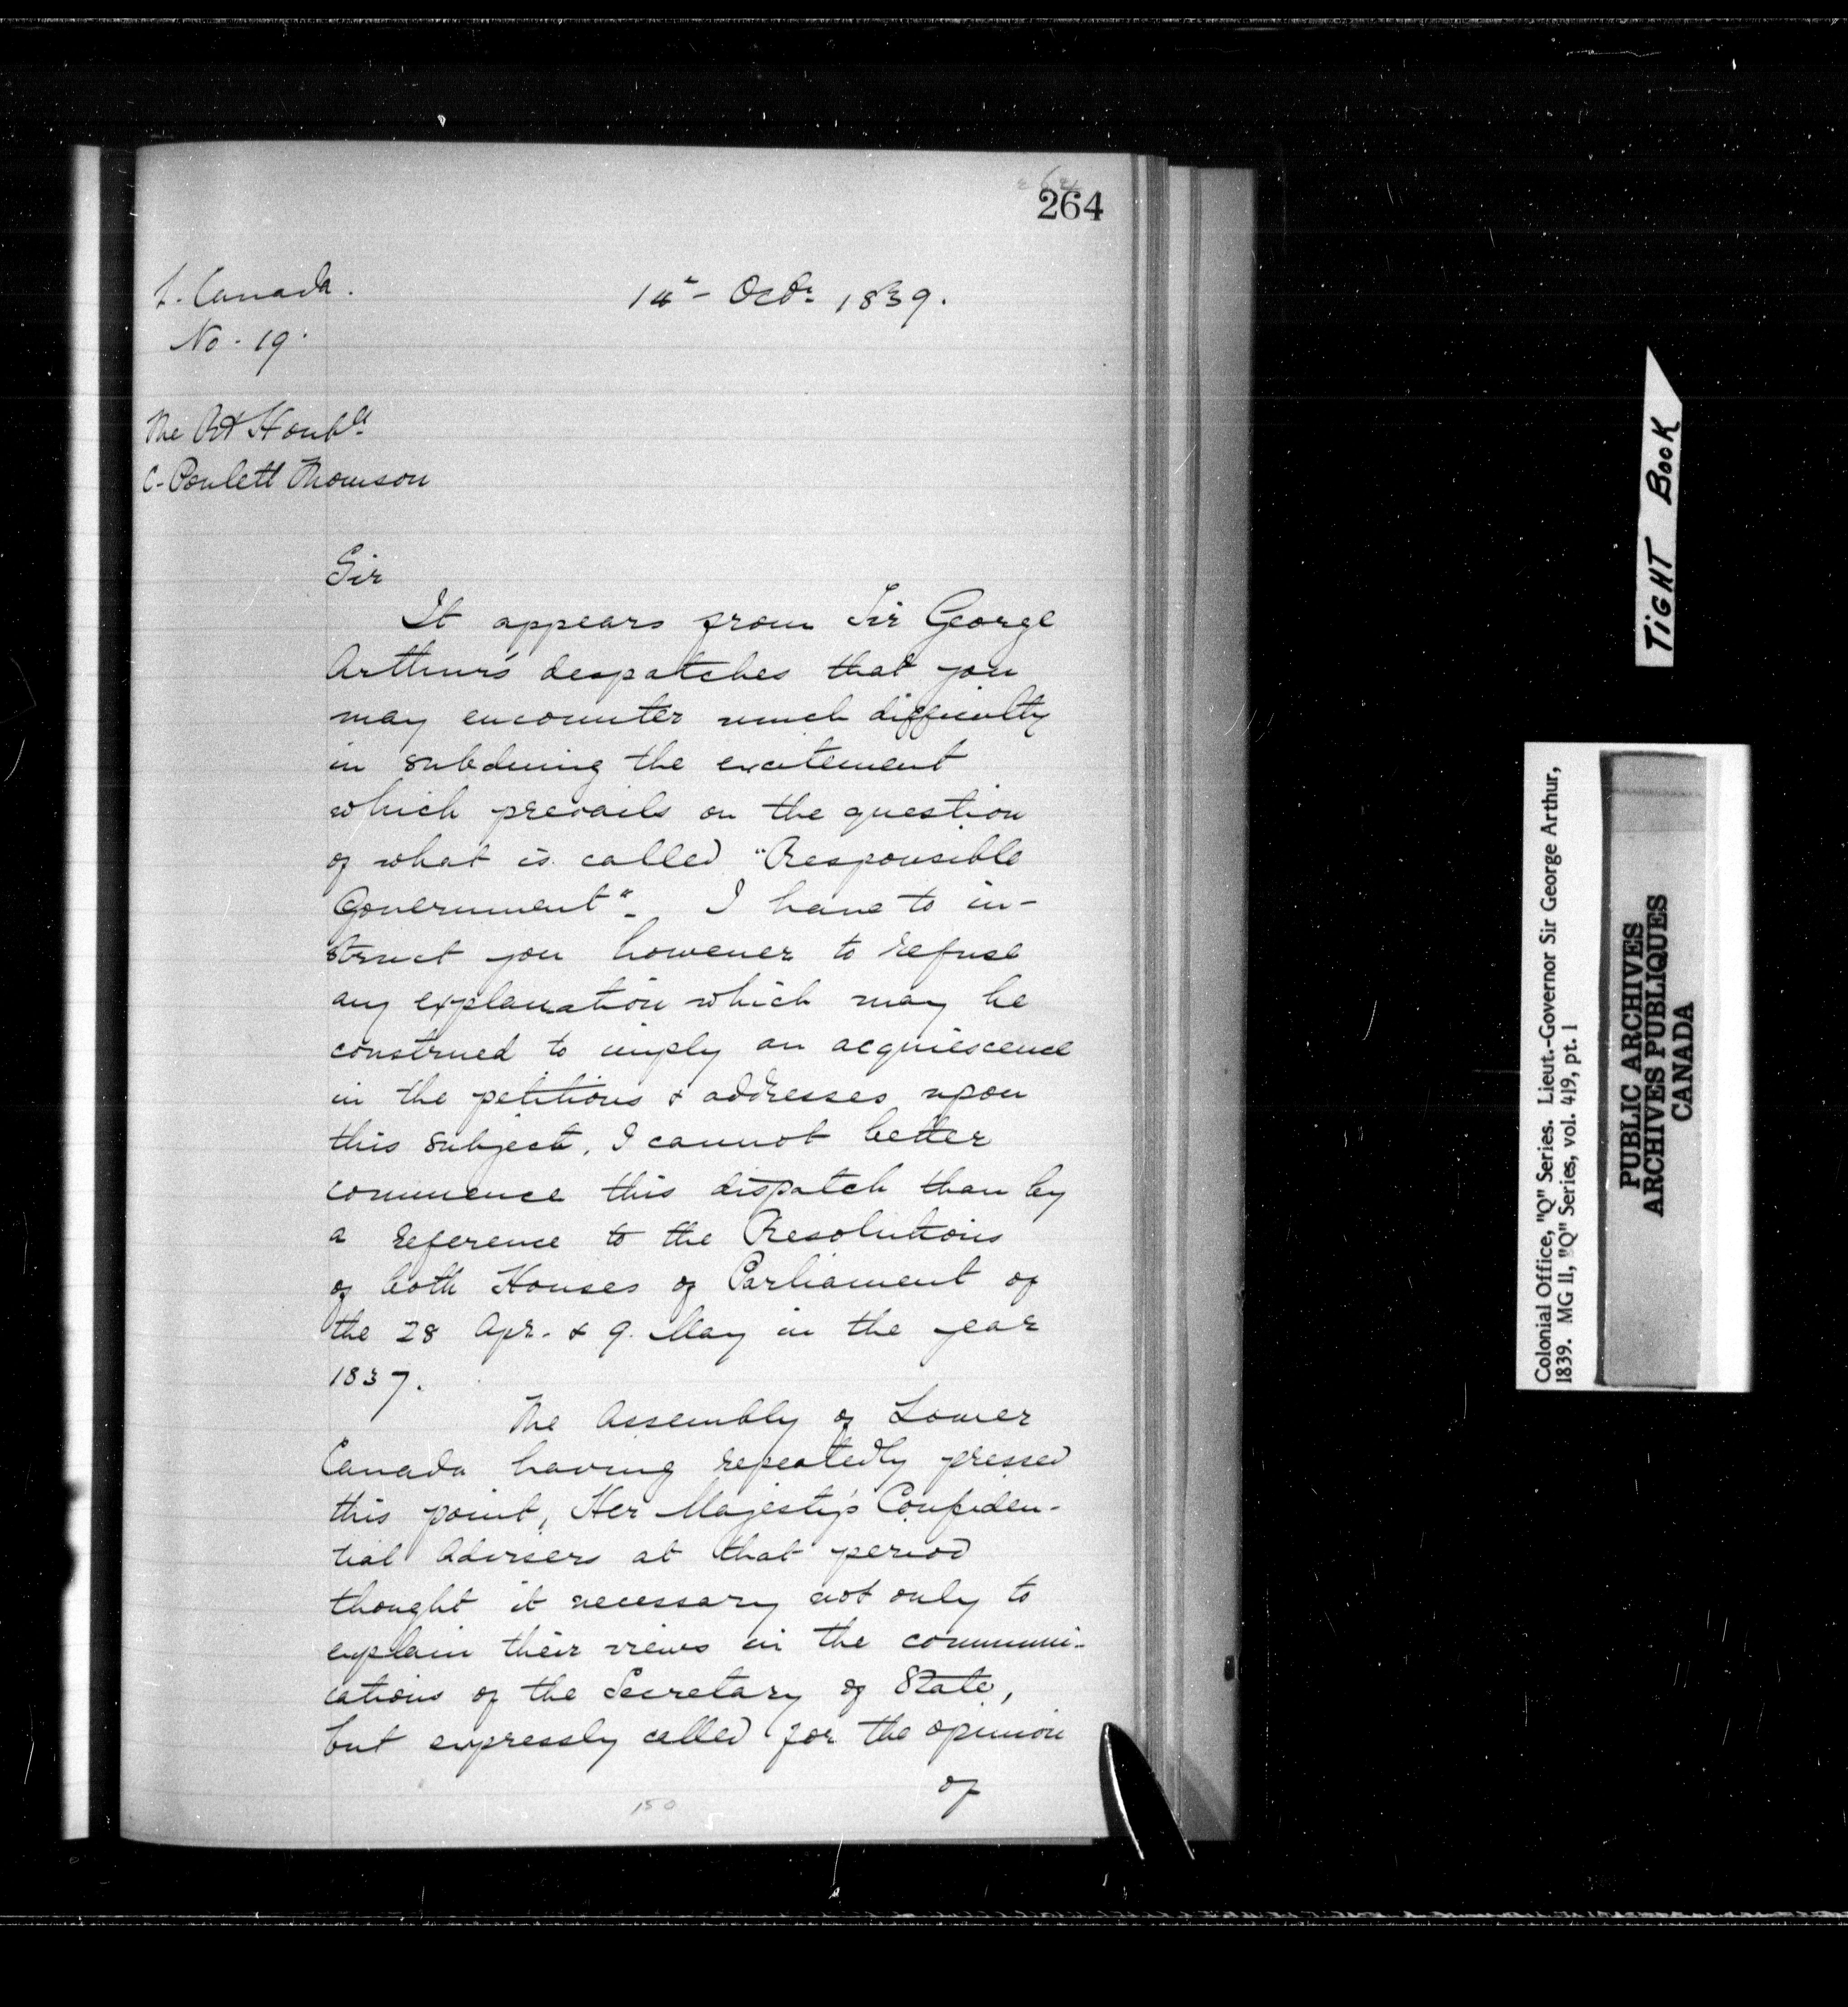 264
L. Canada.
No. 19.
14th Octr 1839.
The Rt Honble
C. Poulett Thomson
Sir
It appears from Sir George
Arthur's despatches that you
may encounter much difficulty
in subduing the excitement
which prevails on the question
of what is called "Responsible
Government". I have to in-
struct you however to refuse
any explanation which may be
construed to imply an acquiescence
in the petitions & addresses upon
this subject. I cannot better
commence this dispatch than by
a reference to the Resolutions
of both Houses of Parliament of
the 28 Apr. & 9. May in the year
1837.
The Assembly of Lower
Canada having repeatedly pressed
this point, Her Majesty's Confiden-
tial Advisers at that period
thought it necessary not only to
explain their views in the communi-
cations of the Secretary of State,
but expressly called for the opinion
of
150
TIGHT BOOK
Colonial Office, "Q" Series. Lieut.-Governor Sir George Arthur,
1839. MG 11, "Q" Series, vol. 419, pt. 1
PUBLIC ARCHIVES
ARCHIVES PUBLIQUES
CANADA